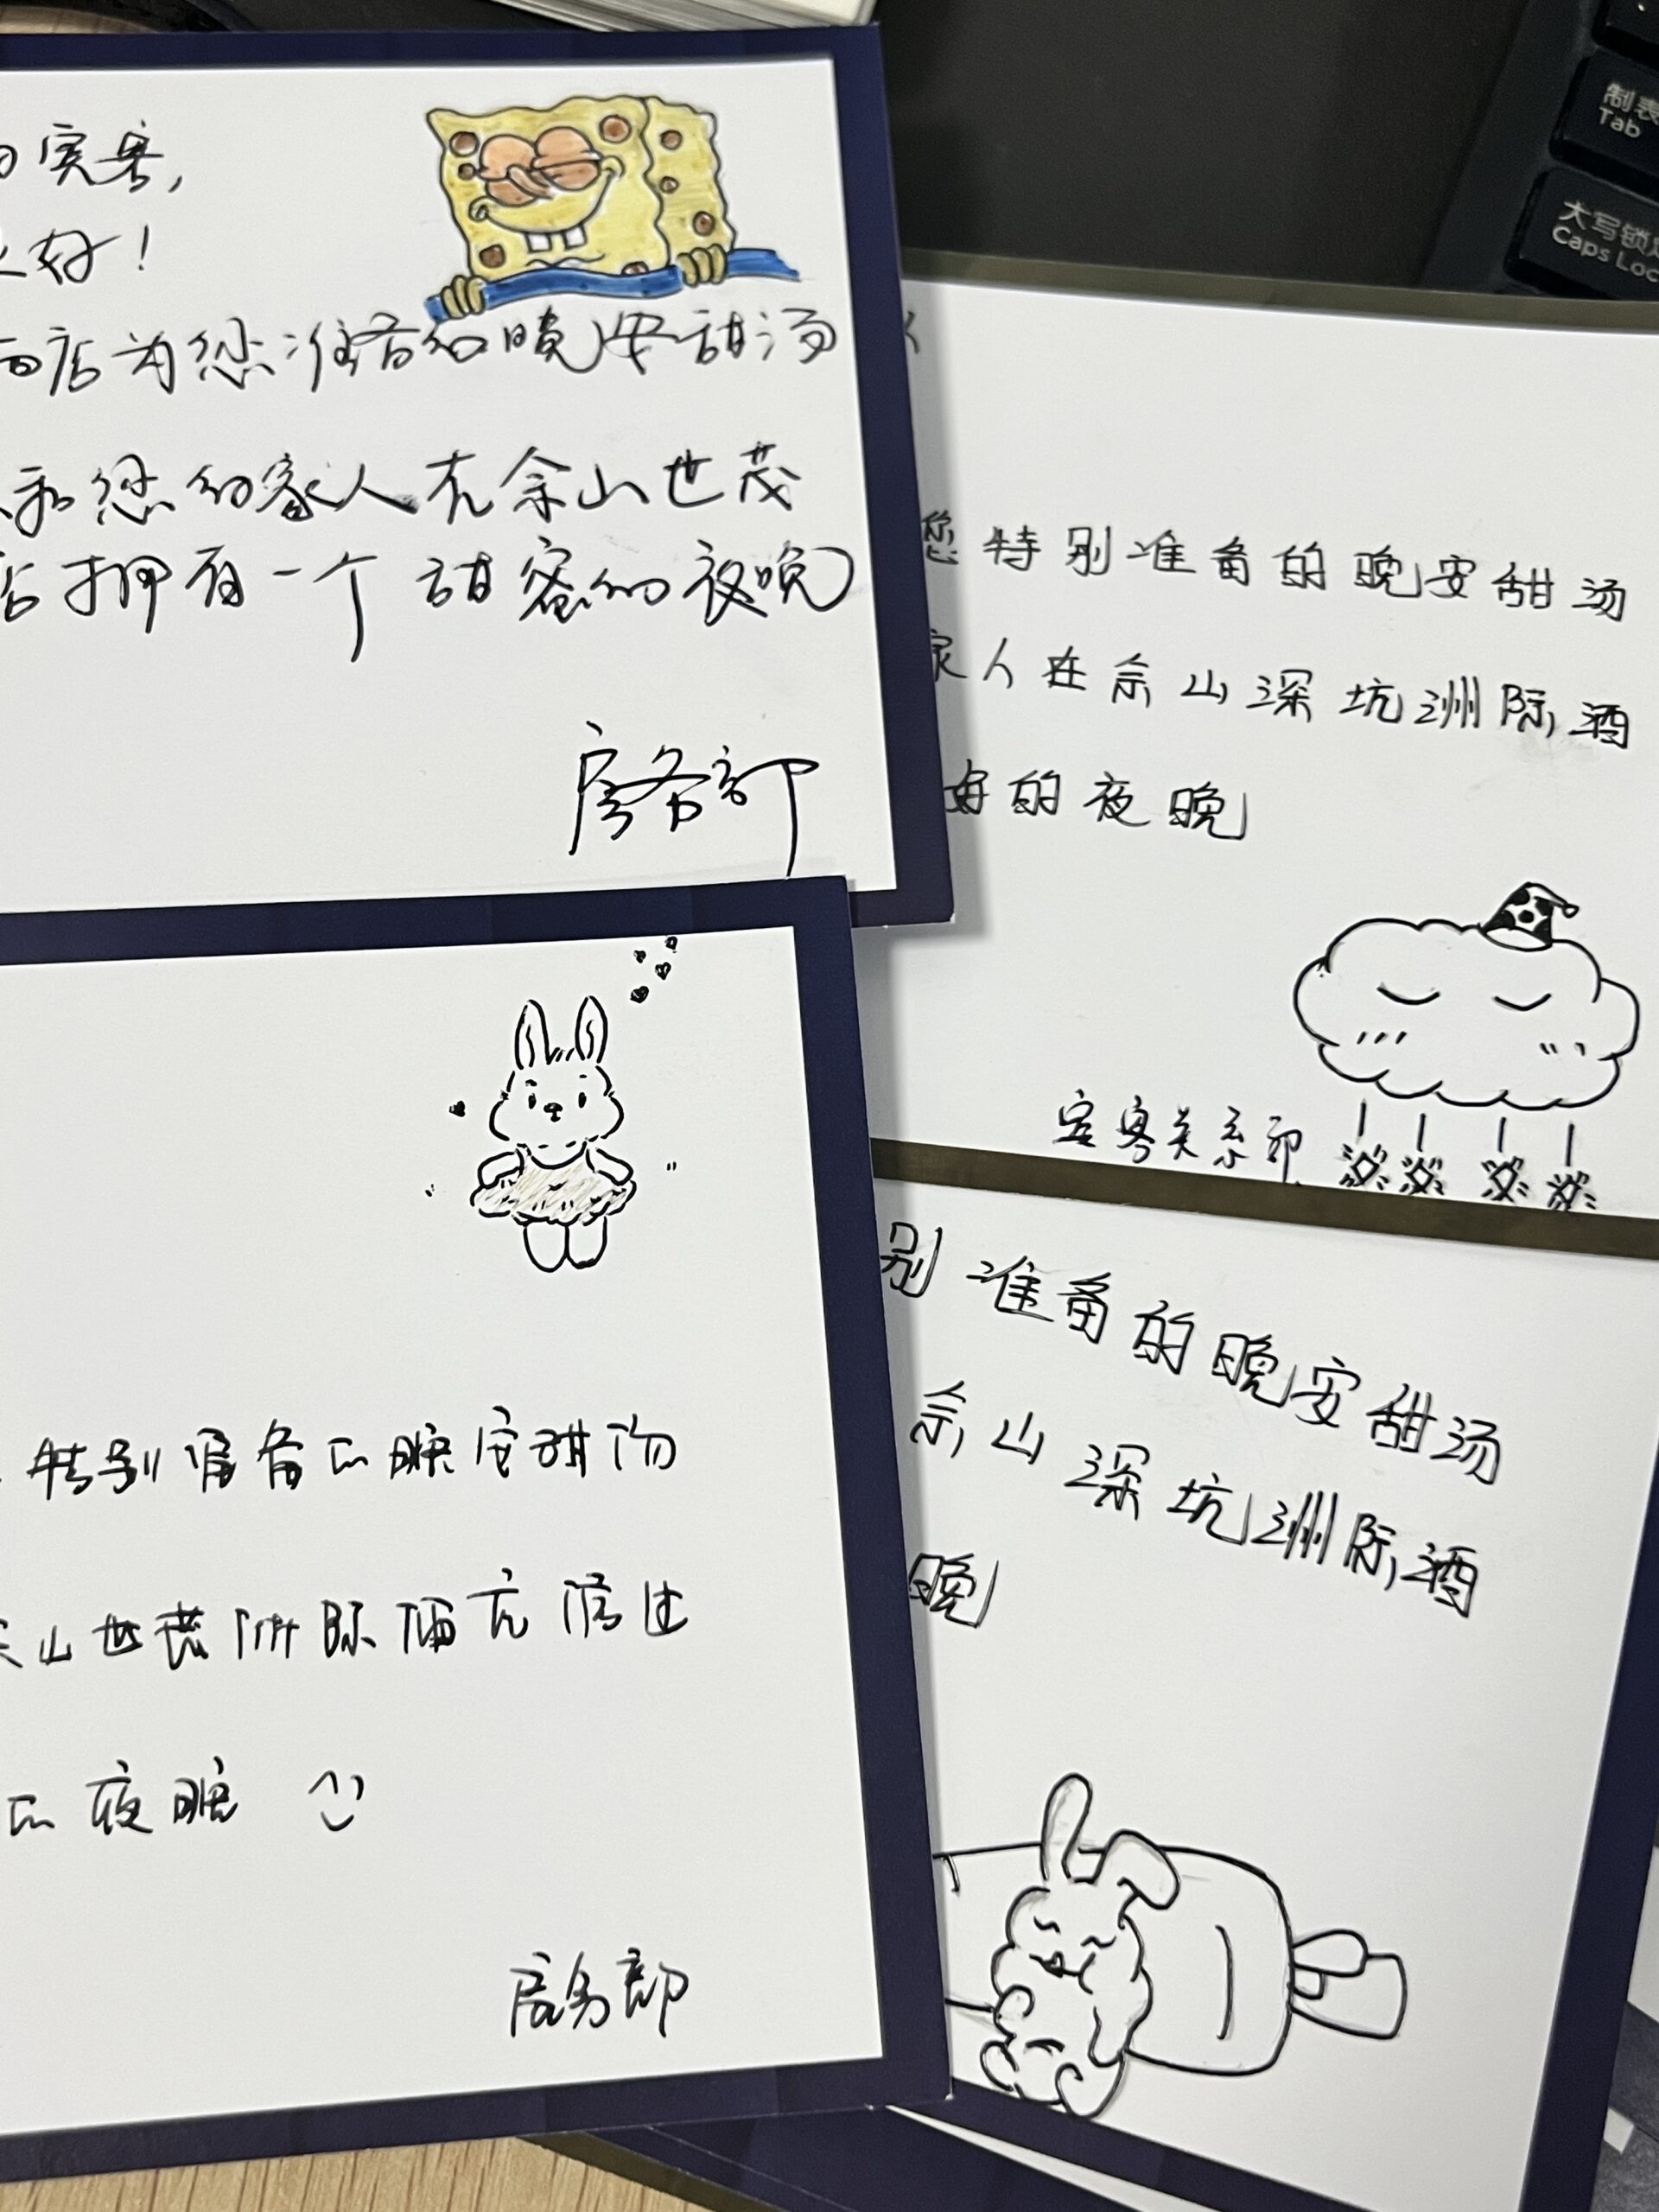 宾客，
好！
店为您准备的晚安甜汤
和您的家人在佘山世茂
店拥有一个甜蜜的夜晚
房务部
制表
Tab
大写锁定
Caps Loc
您特别准备的晚安甜汤
家人在佘山深坑洲际酒
好的夜晚
宾客关系部
特别准备的晚安甜汤
山世茂洲际酒店
的夜晚
房务部
别准备的晚安甜汤
佘山深坑洲际酒
晚